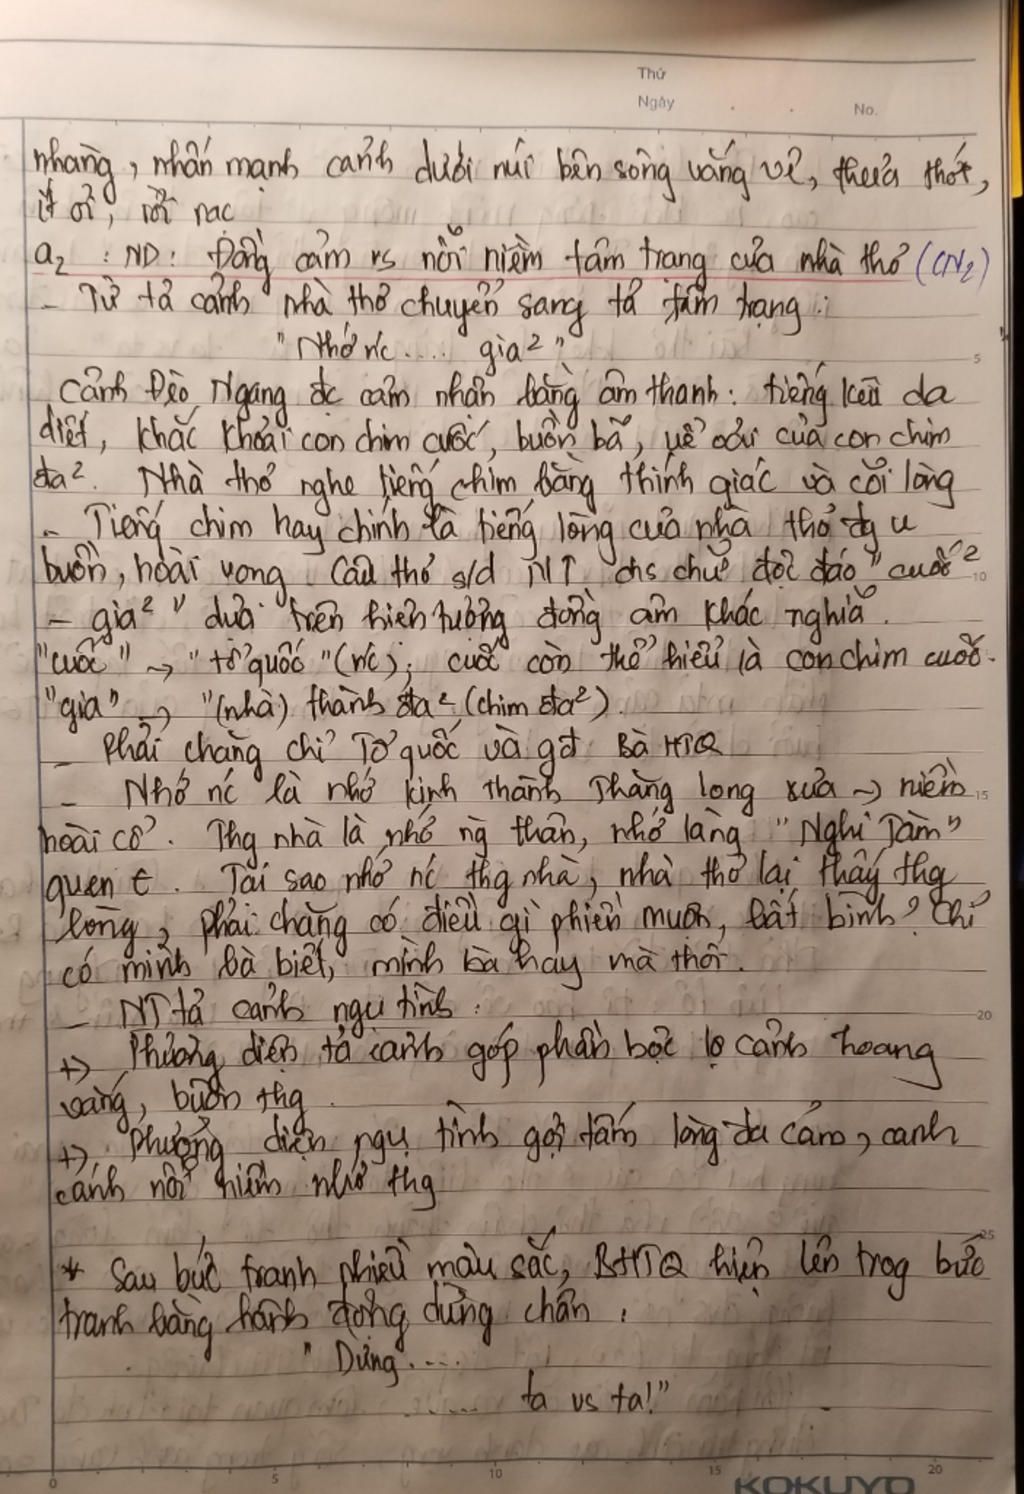 Thứ
Ngày . . No.
nhàng, nhấn mạnh cảnh dưới núi bên sông vắng vẻ, thưa thớt,
ít ỏi, rời rạc
a2 : ND: Đồng cảm vs nỗi niềm tâm trạng của nhà thơ (CN2)
- Từ tả cảnh nhà thơ chuyển sang tả tâm trạng :
"Nhớ nc.... gia²"
Cảnh Đèo Ngang đc cảm nhận bằng âm thanh: tiếng kêu da
diết, khắc khoải con chim cuốc, buồn bã, uể oải của con chim
đa². Nhà thơ nghe tiếng chim bằng thính giác và cõi lòng
- Tiếng chim hay chính là tiếng lòng của nhà thơ đg u
buồn, hoài vọng. Câu thơ s/d NT chs chữ độc đáo "cuốc²
- gia²" dựa trên hiện tượng đồng âm khác nghĩa.
"cuốc" → "tổ quốc" (nc); cuốc còn thể hiểu là con chim cuốc.
"gia" → "(nhà) thành đa² (chim đa²).
- Phải chăng chỉ Tổ quốc và gđ Bà HTQ
- Nhớ nc là nhớ kinh thành Thăng Long xưa → niềm
hoài cổ. Thg nhà là nhớ ng thân, nhớ làng "Nghi Tàm"
quen t. Tại sao nhớ nc thg nhà, nhà thơ lại thấy thg
lòng, phải chăng có điều gì phiền muộn, bất bình? Chỉ
có mình bà biết, mình bà hay mà thôi.
- NT tả cảnh ngụ tình :
+> Phương diện tả cảnh góp phần bộc lộ cảnh hoang
vắng, buồn thg.
+> Phương diện ngụ tình gợi tấm lòng đa cảm, canh
cánh nỗi niềm nhớ thg
* Sau bức tranh nhiều màu sắc, BHTQ hiện lên trog bức
tranh bằng hành động dừng chân :
" Dừng....
...... ta vs ta!"
0 5 10 15 20
KOKUYO